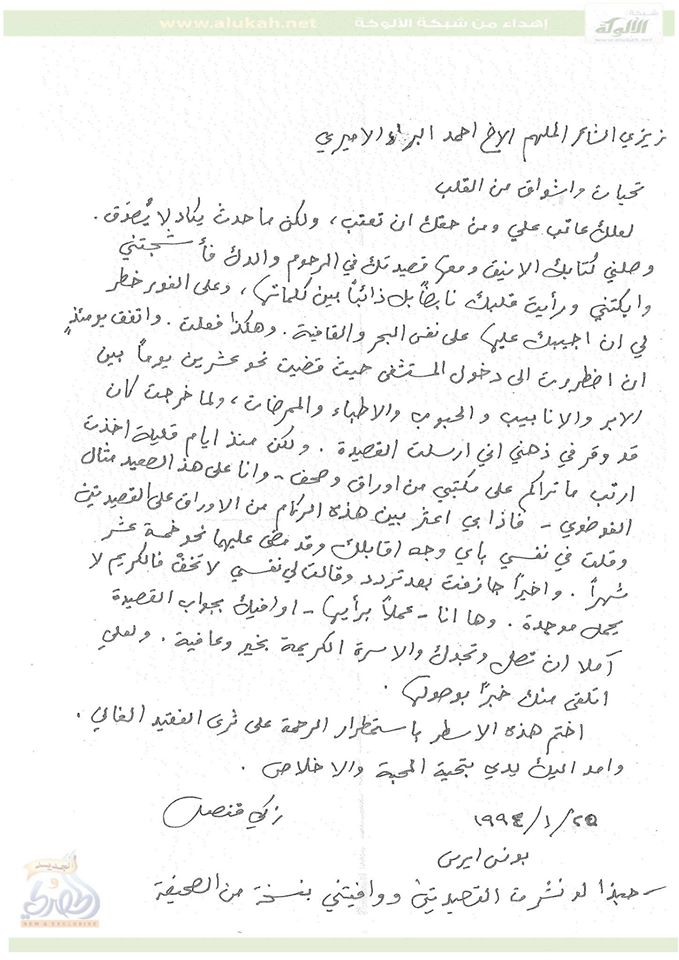 www.alukah.net إهداء من شبكة الألوكة
شبكة
الألوكة
www.alukah.net
زيزي الشاعر الملهم الاخ احمد البراء الاميري
تحيات واشواق من القلب
لعلك عاتب علي ومن حقك ان تعتب ، ولكن ما حدث يكاد لا يُصدَّق .
وصلني كتابك الانيق ومعها قصيدتك في المرحوم والدك فأشجتني
وابكتني ورأيت قلبك نابضاً بل ذائباً بين كلماتها ، وعلى الفور خطر
لي ان اجيبك عليها على نفس البحر والقافية . وهكذا فعلت . واتفق يومئذٍ
ان اضطررت الى دخول المستشفى حيث قضيت نحو عشرين يوماً بين
الابر والانابيب والحبوب والاطباء والممرضات ، ولما خرجت كان
قد وقر في ذهني اني ارسلت القصيدة . ولكن منذ ايام قليلة اخذت
ارتب ما تراكم على مكتبي من اوراق وصحف - وانا على هذا الصعيد مثال
الفوضوي - فاذا بي اعثر بين هذه الركام من الاوراق على القصيدتين
وقلت في نفسي باي وجه اقابلك وقد مضى عليها نحو خمسة عشر
شهراً . واخيراً جازفت بعد تردد وقالت لي نفسي لا تخف فالكريم لا
يحمل موجدة . وها انا - عملاً برأيها - اوافيك بجواب القصيدة
آملا ان تصل وتجدك والاسرة الكريمة بخير وعافية . ولعلي
اتلقى منك خبراً بوصولها .
اختم هذه الاسطر باستمطار الرحمة على ثرى الفقيد الغالي .
وامد اليك يدي بتحية المحبة والاخلاص .
زكي قنصل ٢٥/١/١٩٩٤
بونس ايرس
- حبذا لو نشرت القصيدتين ووافيتني بنسخة من الصحيفة
الجديد
و
الحصري
NEW & EXCLUSIVE